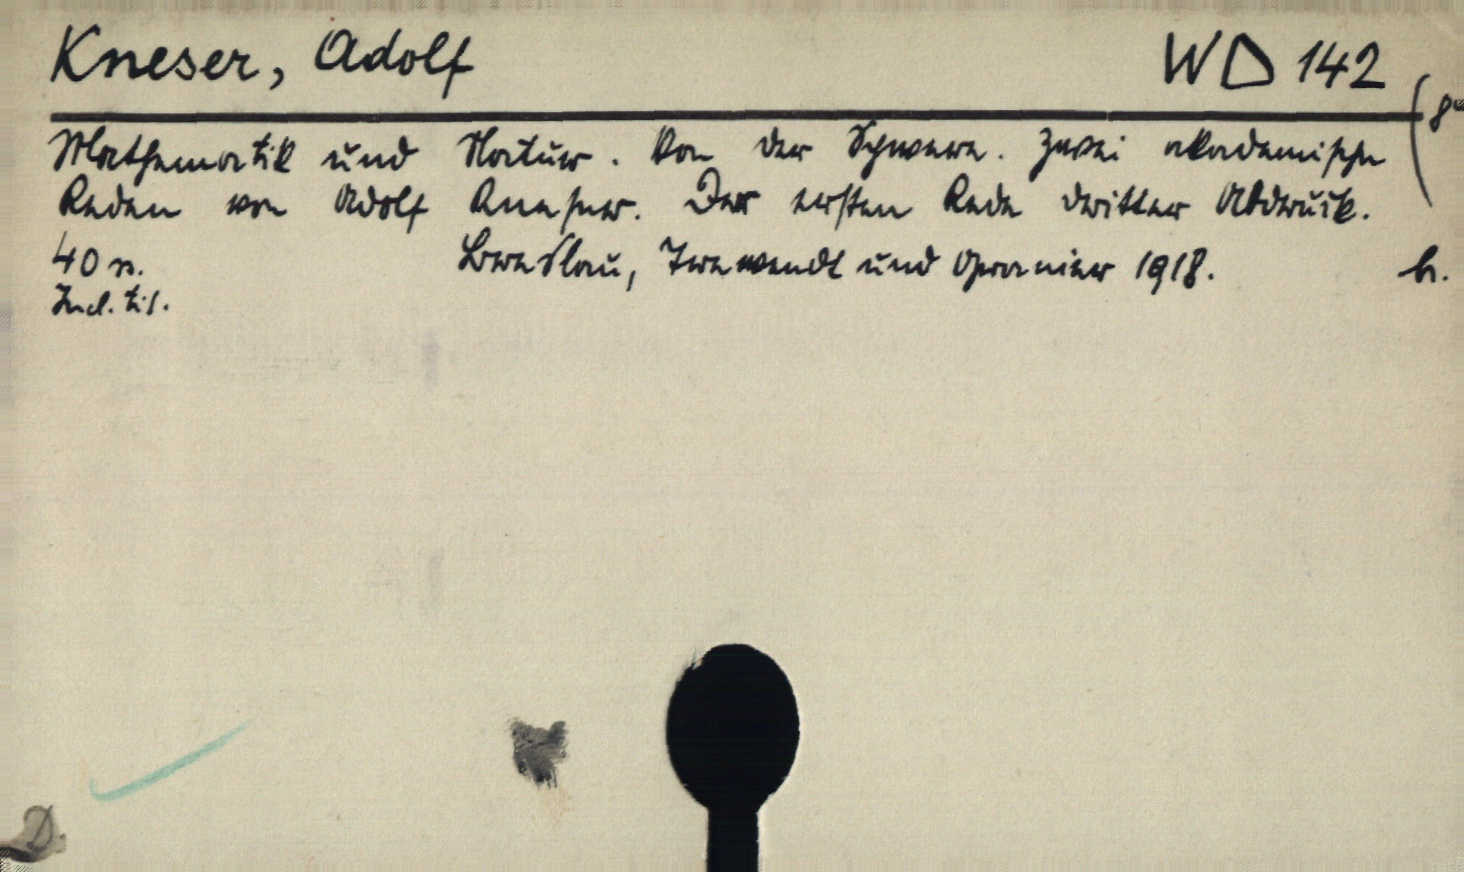 Kneser, Adolf WD 142
Mathematik und Natur. Von der Schwere. Zwei akademische (8°
Reden von Adolf Kneser. Der ersten Rede dritter Abdruck.
40 n. Breslau, Trewendt und Granier 1918. br.
Incl. tit.
D